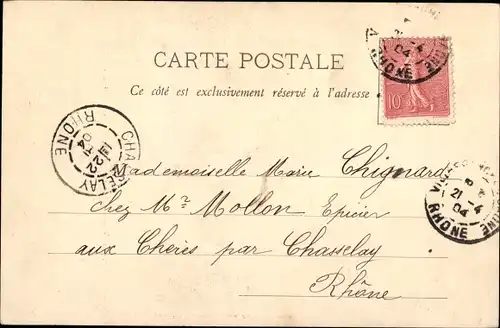 CARTE POSTALE
Ce côté est exclusivement réservé à l'adresse
10
RHONE
04
RHÔNE
22
04
21 -4
04
RHÔNE
Mademoiselle Marie Chignard
chez Mr Mollon Epicier
aux Chères par Chasselay
Rhône